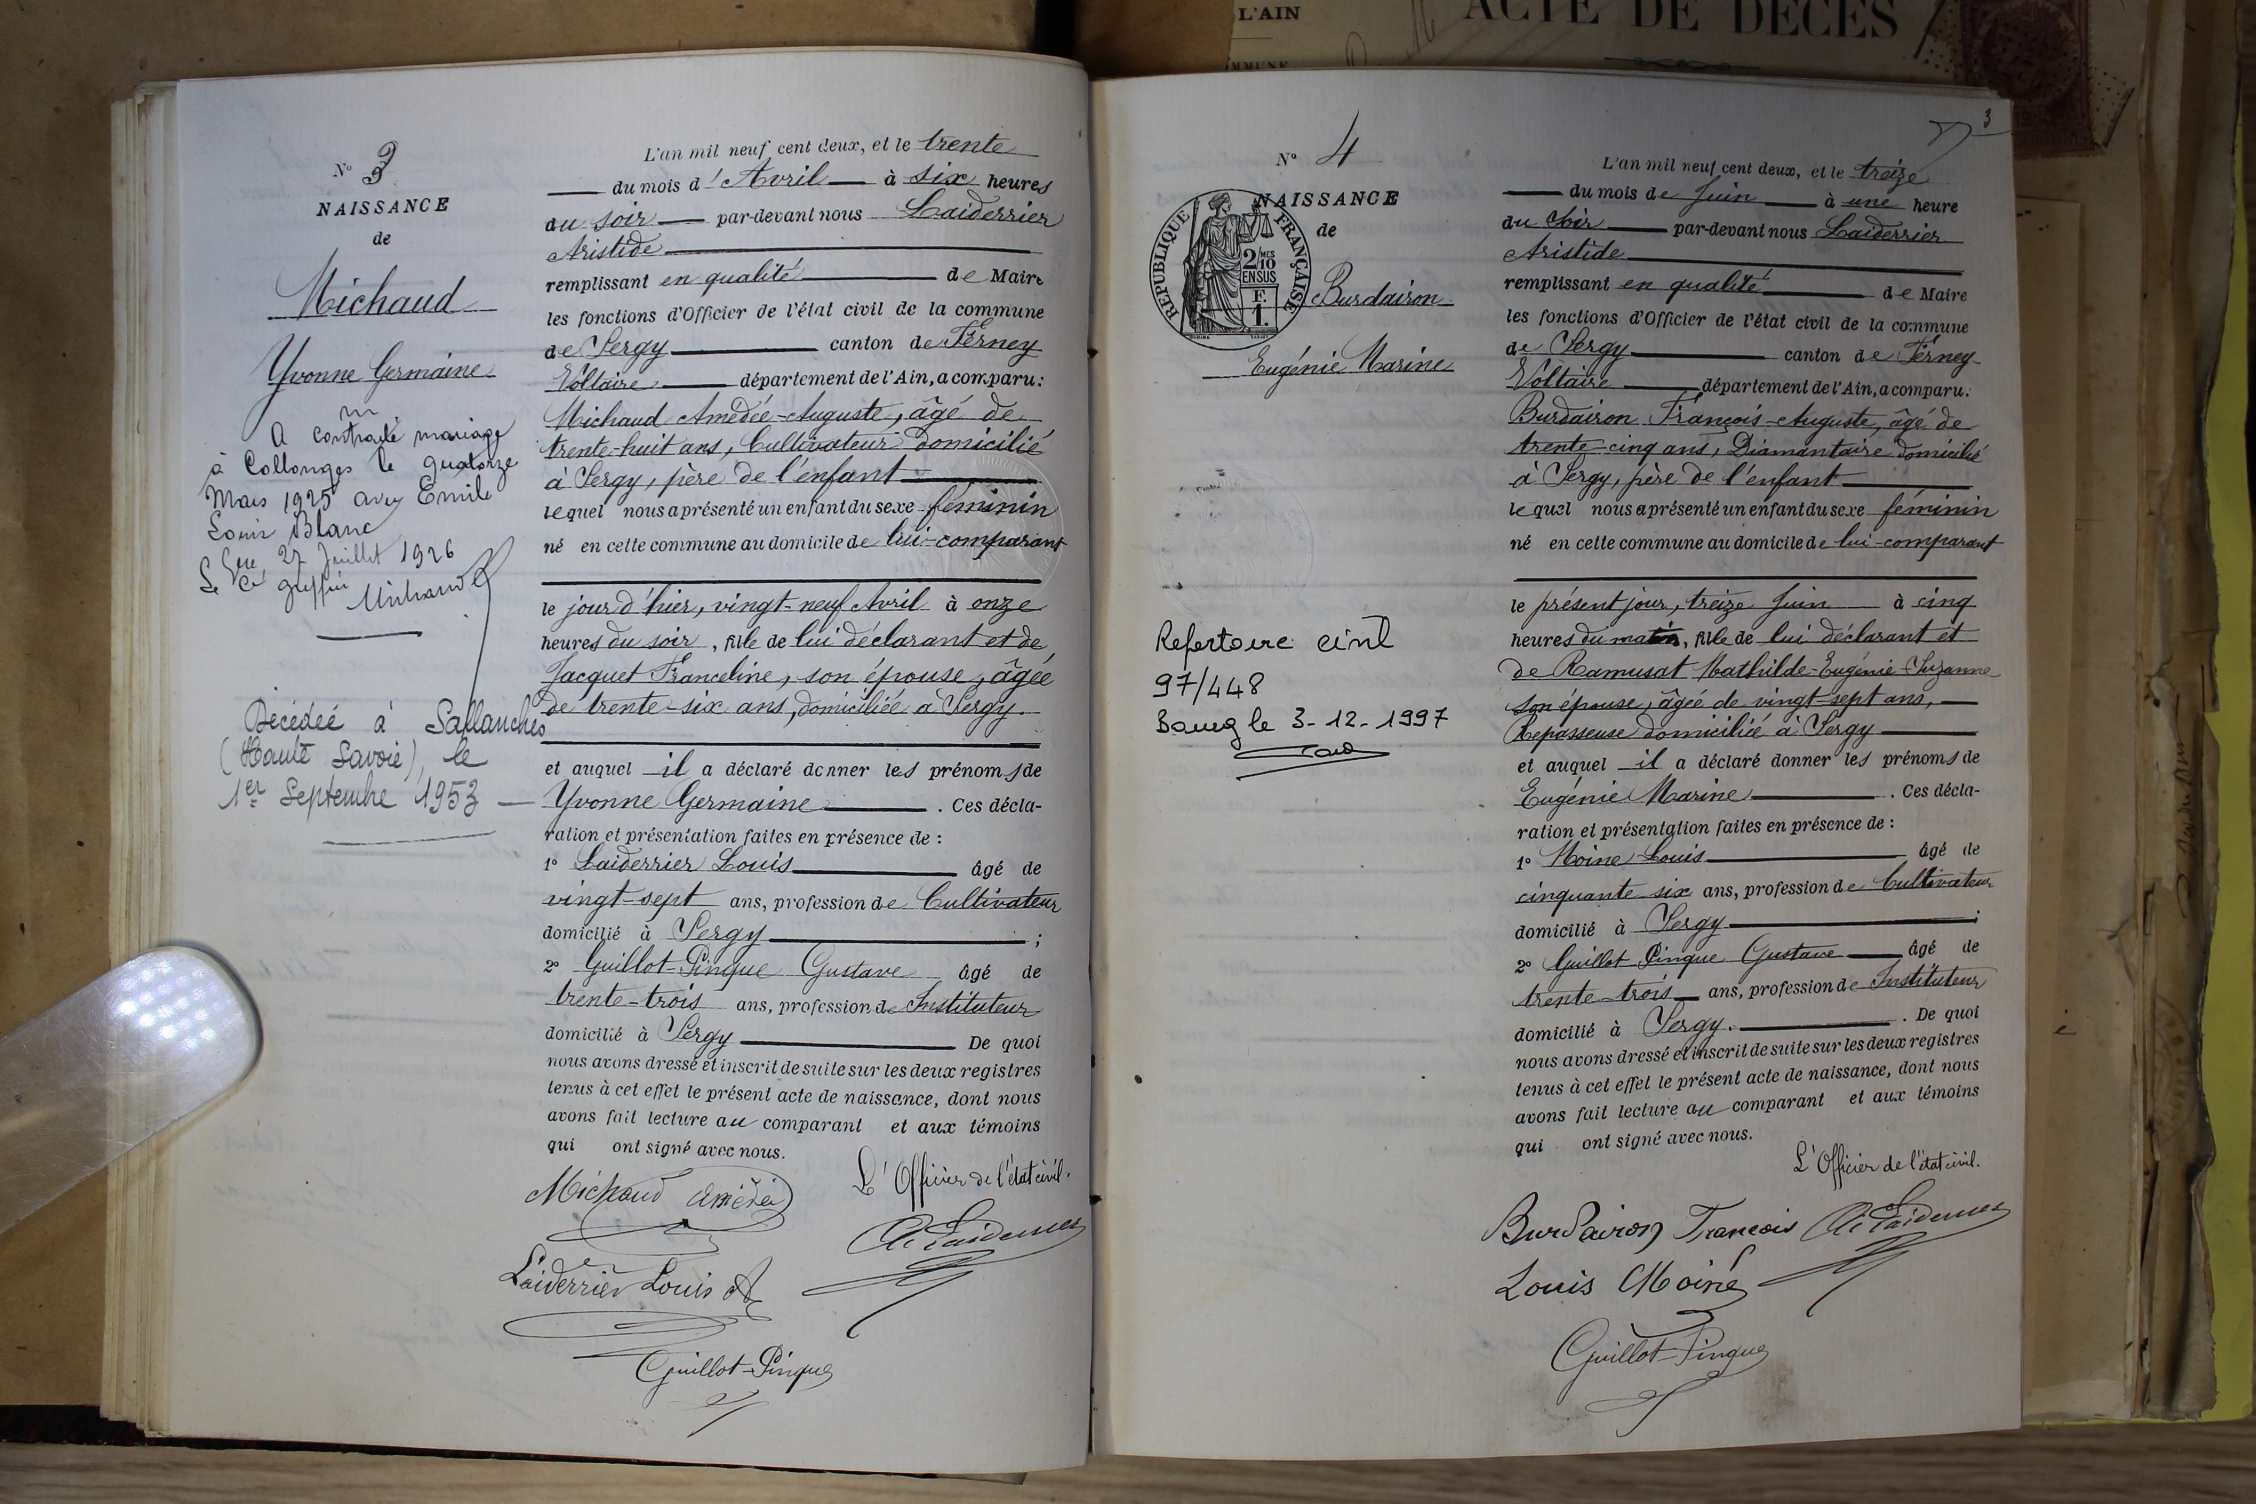 L'AIN
ACTE DE DÉCÈS
N° 3
NAISSANCE
de
Michaud
Yvonne Germaine
A contracté mariage
à Collonges le quatorze
Mars 1925 avec Emile
Louis Blanc
Gex, 27 Juillet 1926
Le greffier
Michaud
Décédée à Sallanches
(Haute Savoie), le
1er Septembre 1953
L'an mil neuf cent deux, et le trente
du mois d'Avril à six heures
du soir par-devant nous Laiderrier
Aristide
remplissant en qualité de Maire
les fonctions d'Officier de l'état civil de la commune
de Sergy canton de Ferney
Voltaire département de l'Ain, a comparu:
Michaud Amédée-Auguste, âgé de
trente-huit ans, Cultivateur domicilié
à Sergy, père de l'enfant
lequel nous a présenté un enfant du sexe féminin
né en cette commune au domicile de lui-comparant
le jour d'hier, vingt-neuf Avril à onze
heures du soir, fille de lui déclarant et de
Jacquet Franceline, son épouse, âgée
de trente-six ans, domiciliée à Sergy.
et auquel il a déclaré donner les prénoms de
Yvonne Germaine. Ces décla-
ration et présentation faites en présence de :
1° Laiderrier Louis âgé de
vingt-sept ans, profession de Cultivateur
domicilié à Sergy ;
2° Guillot-Pinque Gustave âgé de
trente-trois ans, profession de Instituteur
domicilié à Sergy De quoi
nous avons dressé et inscrit de suite sur les deux registres
tenus à cet effet le présent acte de naissance, dont nous
avons fait lecture au comparant et aux témoins
qui ont signé avec nous.
L'Officier de l'état civil.
Michaud Amédée
A. Laiderrier
Laiderrier Louis
Guillot-Pinque
3
N° 4
NAISSANCE
de
RÉPUBLIQUE FRANÇAISE
2/10 MES
EN SUS
F.
1.
Burdairon
Eugénie Marine
Repertoire civil
97/448
Bourg le 3-12-1997
L'an mil neuf cent deux, et le treize
du mois de Juin à une heure
du soir par-devant nous Laiderrier
Aristide
remplissant en qualité de Maire
les fonctions d'Officier de l'état civil de la commune
de Sergy canton de Ferney
Voltaire département de l'Ain, a comparu:
Burdairon François-Auguste, âgé de
trente-cinq ans, Diamantaire domicilié
à Sergy, père de l'enfant
lequel nous a présenté un enfant du sexe féminin
né en cette commune au domicile de lui-comparant
le présent jour, treize Juin à cinq
heures du matin, fille de lui déclarant et
de Ramusat Mathilde-Eugénie-Suzanne
son épouse, âgée de vingt-sept ans,
Repasseuse domiciliée à Sergy
et auquel il a déclaré donner les prénoms de
Eugénie Marine. Ces décla-
ration et présentation faites en présence de :
1° Moine Louis âgé de
cinquante six ans, profession de Cultivateur
domicilié à Sergy ;
2° Guillot Pinque Gustave âgé de
trente-trois ans, profession de Instituteur
domicilié à Sergy. De quoi
nous avons dressé et inscrit de suite sur les deux registres
tenus à cet effet le présent acte de naissance, dont nous
avons fait lecture au comparant et aux témoins
qui ont signé avec nous.
L'Officier de l'état civil.
Burdairon François A. Laiderrier
Louis Moine
Guillot-Pinque